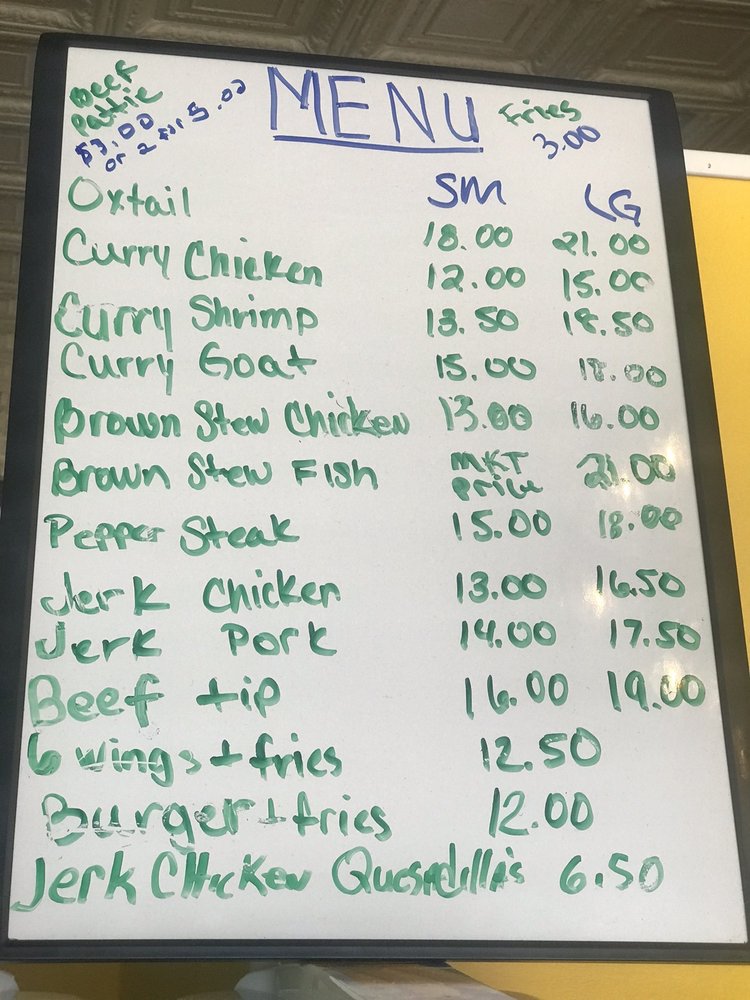 Beef
Pattie
$3.00
or 2 for 5.00
MENU
Fries
3.00
SM LG
Oxtail 18.00 21.00
Curry Chicken 12.00 15.00
Curry Shrimp 13.50 18.50
Curry Goat 15.00 18.00
Brown Stew Chicken 13.00 16.00
Brown Stew Fish MKT price 21.00
Pepper Steak 15.00 18.00
Jerk Chicken 13.00 16.50
Jerk Pork 14.00 17.50
Beef tip 16.00 19.00
6 wings + fries 12.50
Burger + fries 12.00
Jerk Chicken Quesadilla's 6.50